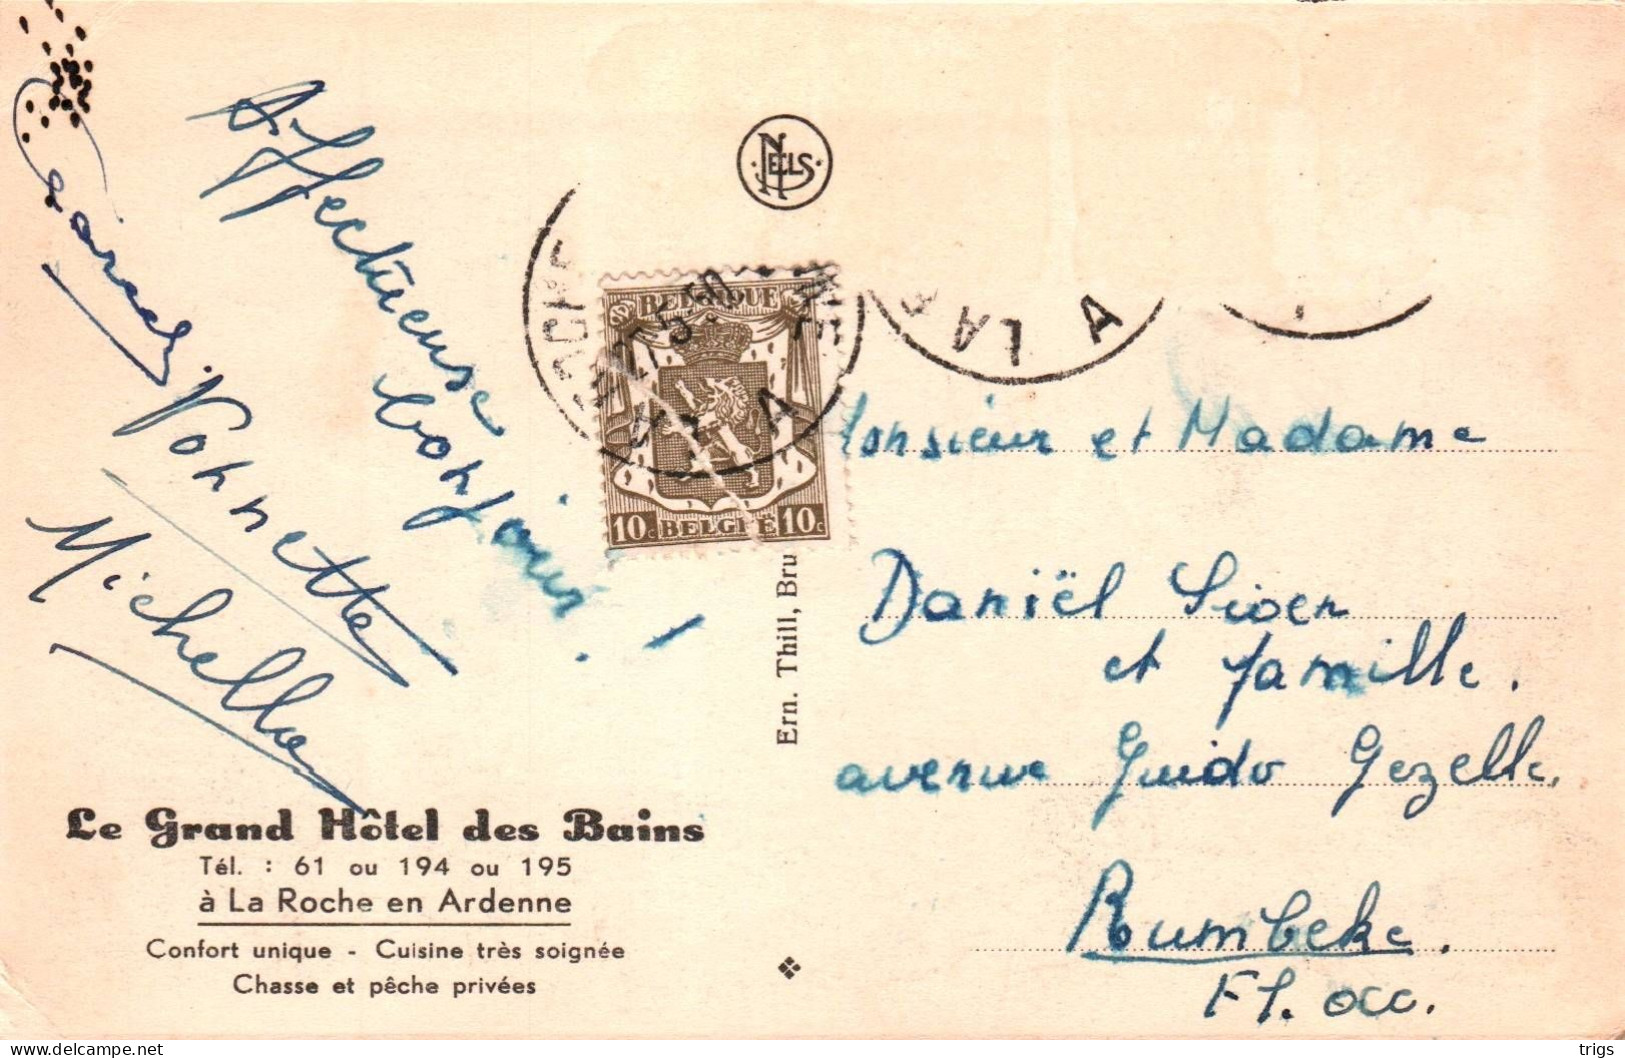 Affectueuse
bonjour !
Nonnette
Michelle
Le Grand Hôtel des Bains
Tél. : 61 ou 194 ou 195
à La Roche en Ardenne
Confort unique - Cuisine très soignée
Chasse et pêche privées
NELS
BELGIQUE
27-5-50
A
10c BELGIË 10c
Ern. Thill, Bru
A LA
Monsieur et Madame
Daniël Sioen
et famille.
avenue Guido Gezelle.
Rumbeke.
Fl. occ.
trigs